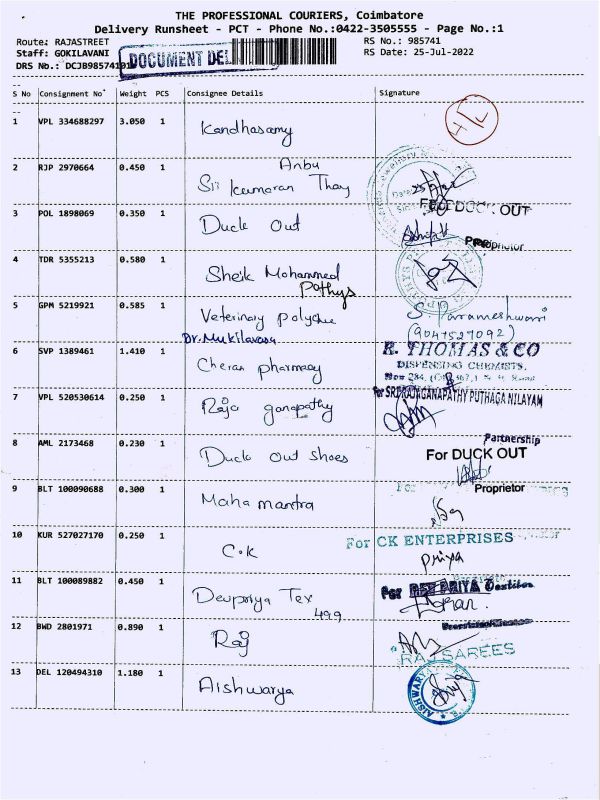 THE PROFESSIONAL COURIERS, Coimbatore
Delivery Runsheet - PCT - Phone No.:0422-3505555 - Page No.:1
Route: RAJASTREET RS No.: 985741
Staff: GOKILAVANI RS Date: 25-Jul-2022
DRS No.: DCJB98574101 DOCUMENT DEL
S No Consignment No Weight PCS Consignee Details Signature
1 VPL 334688297 3.050 1 Kandhasamy
2 RJP 2970664 0.450 1 Anbu
Sri Kumaran Thay
3 POL 1898069 0.350 1 Duck Out For DUCK OUT
Proprietor
4 TDR 5355213 0.580 1 Sheik Mohammed
Pothys
5 GPM 5219921 0.585 1 Veterinary S. Parameshwari
Dr. Mukilavasu (9047527092)
6 SVP 1389461 1.410 1 Cheran pharmacy R. THOMAS & CO
DISPENSING CHEMISTS.
7 VPL 520530614 0.250 1 Raja ganapathy For SRI RAJAGANAPATHY PUTHAGA NILAYAM
Partnership
8 AML 2173468 0.230 1 Duck out shoes For DUCK OUT
Proprietor
9 BLT 100090688 0.300 1 Maha mantra
10 KUR 527027170 0.250 1 C.K For CK ENTERPRISES
Priya
11 BLT 100089882 0.450 1 Devpriya Tex For DEV PRIYA Textiles
499
12 BWD 2801971 0.890 1 Raj RAJ SAREES
13 DEL 120494310 1.180 1 Aishwarya AISHWARYA